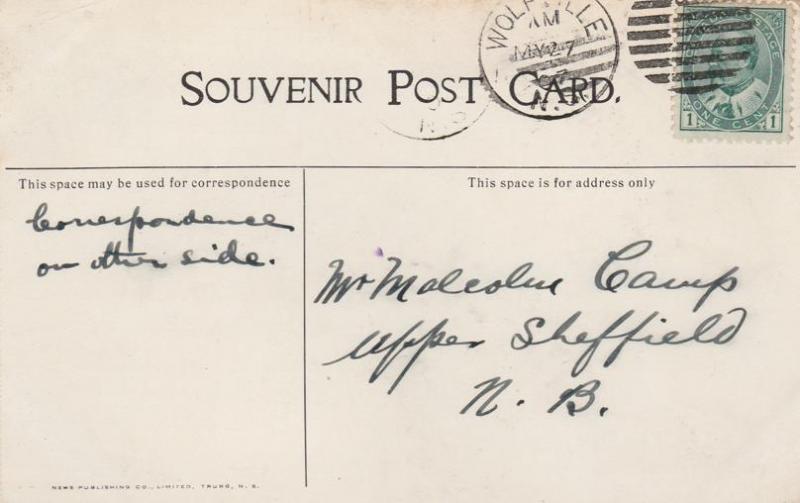 WOLFVILLE
AM
MY 27
07
N.S.
SOUVENIR POST CARD.
N.S
POSTAGE
1 ONE CENT 1
This space may be used for correspondence
This space is for address only
Correspondence
on other side.
Mr Malcolm Camp
Upper Sheffield
N. B.
NEWS PUBLISHING CO., LIMITED, TRURO, N. S.